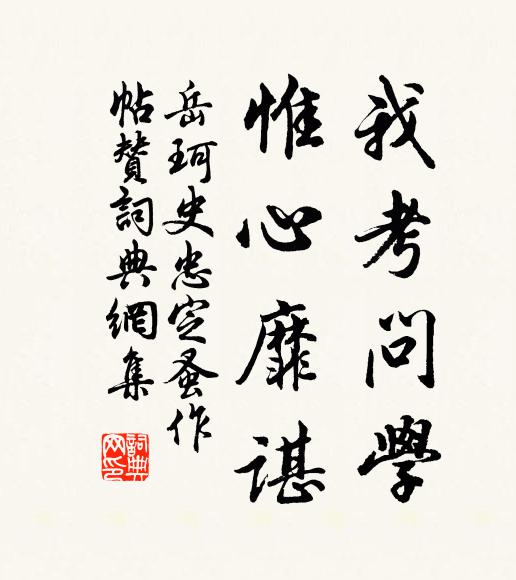 我考問學
惟心靡諶
岳珂史忠定蚤作
帖贊詞典網集
詞典網印